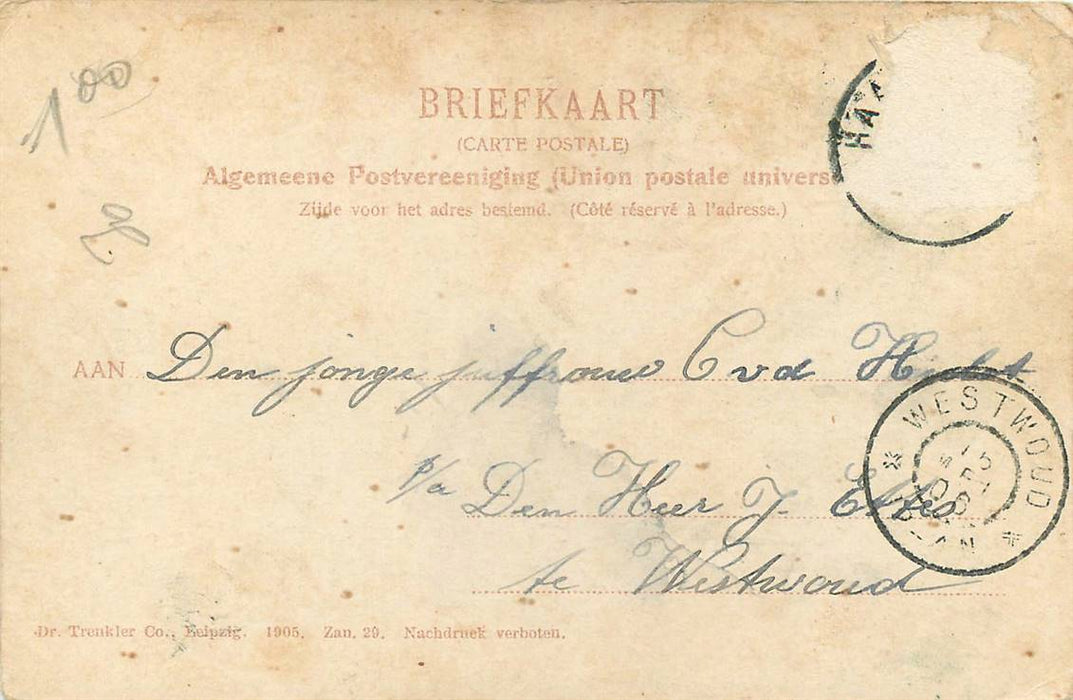 1 00
BRIEFKAART
(CARTE POSTALE)
Algemeene Postvereeniging (Union postale univers
Zijde voor het adres bestemd. (Côté réservé à l'adresse.)
HAA
AAN Den jonge juffrouw C vd
p/a Den Heer J.
te Westwoud
WESTWOUD
Dr. Trenkler Co., Leipzig. 1905. Zan. 29. Nachdruck verboten.